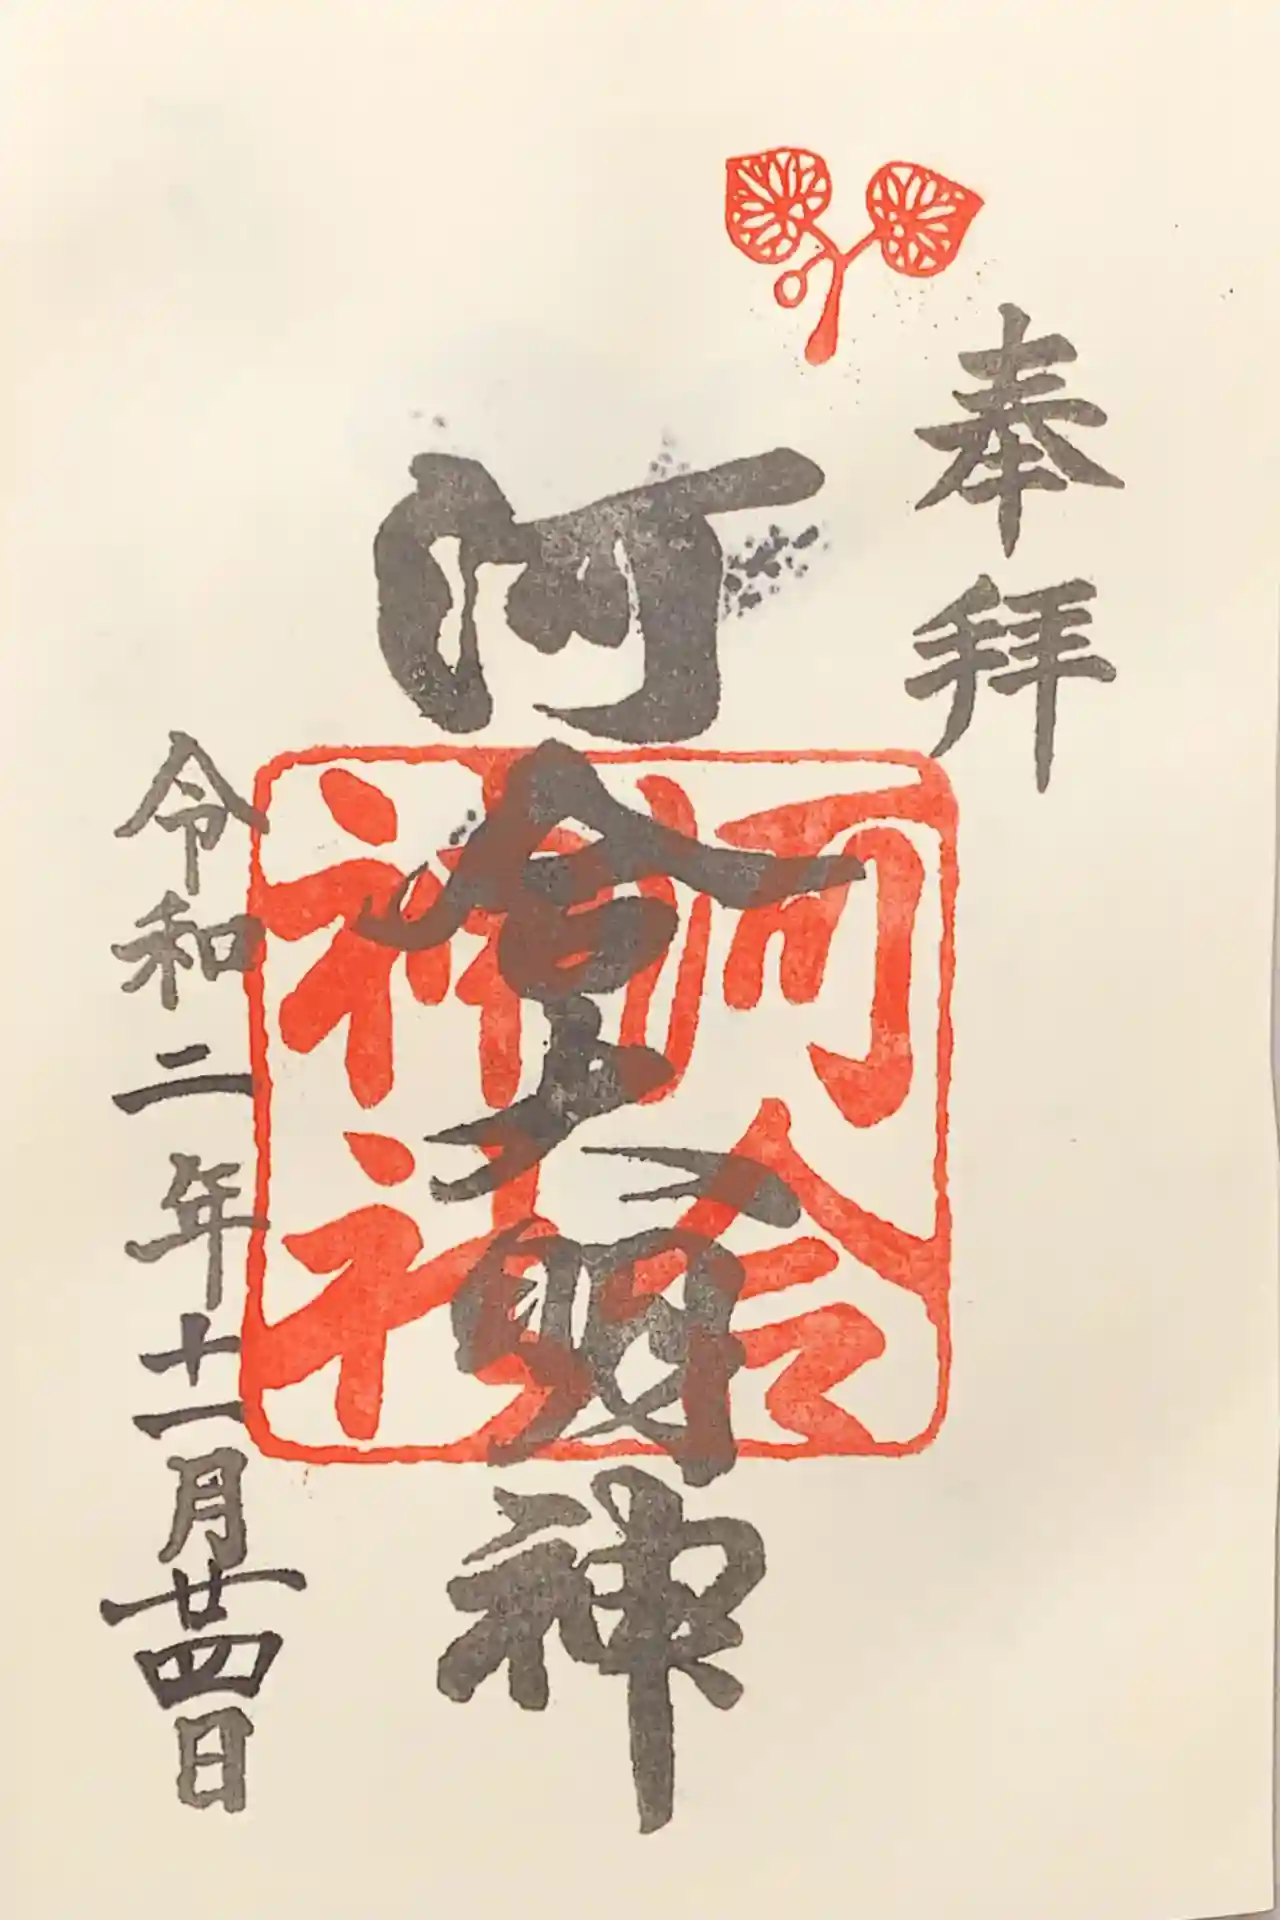 奉拝
河合大明神
河合
神社
令和二年十一月廿四日